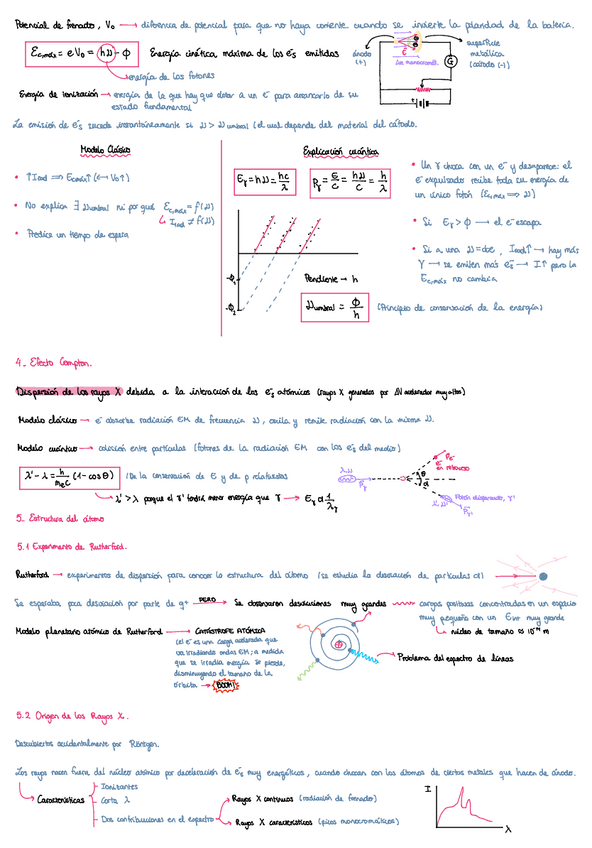 Potencial de frenado, V₀ → diferencia de potencial para que no haya corriente cuando se invierte la polaridad de la batería.
Ec,máx = eV₀ = hν - ϕ
Energía cinética máxima de los e⁻s emitidos
energía de los fotones
ánodo (+)
e⁻
luz monocromát.
superficie metálica (cátodo (-))
G
Energía de ionización → energía de la que hay que dotar a un e⁻ para arrancarlo de su
estado fundamental
La emisión de e⁻s sucede instantáneamente si ν > ν umbral (el cual depende del material del cátodo.
Modelo Clásico
• ↑Irad ⟹ Ecmáx↑ (↔ V₀↑)
• No explica ∃ νumbral ni por qué Ec,máx = f(ν)
Irad ≠ f(ν)
• Predice un tiempo de espera
Explicación cuántica
Eγ = hν = hc/λ
Pγ = E/c = hν/c = h/λ
-ϕ₁
-ϕ₂
Pendiente → h
νumbral = ϕ/h
(Principio de conservación de la energía)
• Un γ choca con un e⁻ y desaparece: el
e⁻ expulsado recibe toda su energía de
un único fotón (Ec,máx ⟹ ν)
• Si Eγ > ϕ → el e⁻ escapa
• Si a una ν = cte, Irad↑ → hay más
γ → se emiten más e⁻s → I↑ pero la
Ec,máx no cambia
4. Efecto Compton.
Dispersión de los rayos X debida a la interacción de los e⁻s atómicos (rayos X generados por ΔV acelerador muy altos)
Modelo clásico → e⁻ absorbe radiación EM de frecuencia ν, oscila y remite radiación con la misma ν.
Modelo cuántico → colisión entre partículas (fotones de la radiación EM con los e⁻s del medio)
λ' - λ = h/mec (1 - cosθ)
(De la conservación de E y de p relativistas
λ' > λ porque el γ' tendrá menor energía que γ → Eγ α 1/λγ
λ, ν
Pγ
Pe⁻
e⁻ en retroceso
θ
α
Fotón dispersado, γ'
λ', ν'
Pγ'
5. Estructura del átomo
5.1 Experimento de Rutherford.
Rutherford → experimentos de dispersión para conocer la estructura del átomo (se estudia la desviación de partículas α)
Se esperaba poca desviación por parte de q⁺ PERO → Se observaron desviaciones muy grandes → cargas positivas concentradas en un espacio
muy pequeño con un Eint muy grande
núcleo de tamaño ≈ 10⁻¹⁴ m
Modelo planetario atómico de Rutherford → CATÁSTROFE ATÓMICA
(el e⁻ es una carga acelerada que
va irradiando ondas EM; a medida
que se irradia energía se pierde,
disminuyendo el tamaño de la
órbita → BOOM!
Problema del espectro de líneas
5.2 Origen de los Rayos X.
Descubiertos accidentalmente por Röntgen.
Los rayos nacen fuera del núcleo atómico por deceleración de e⁻s muy energéticos, cuando chocan con los átomos de ciertos metales que hacen de ánodo.
Características
Ionizantes
Corta λ
Dos contribuciones en el espectro
Rayos X continuos (radiación de frenado)
Rayos X característicos (picos monocromáticos)
I
λ